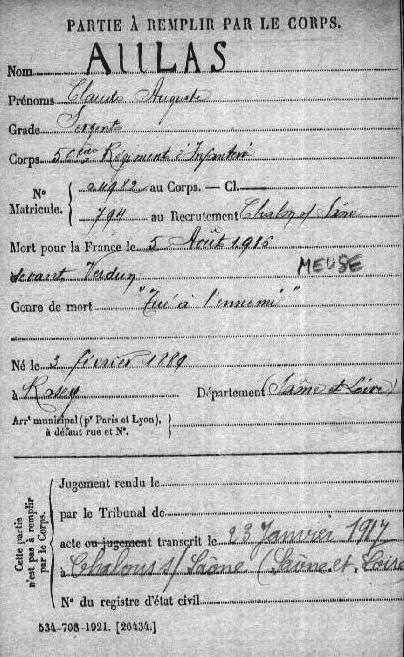 PARTIE À REMPLIR PAR LE CORPS.
Nom AULAS
Prénoms Claude Auguste
Grade Sergent
Corps Régiment d'Infanterie
N° Matricule. au Corps. — Cl.
794 au Recrutement Chalon s/ Saône
Mort pour la France le 5 Août 1916
devant Verdun MEUSE
Genre de mort "Tué à l'ennemi"
Né le 3 février 1889
à Département (Saône et Loire)
Arrt municipal (pr Paris et Lyon), à défaut rue et N°.
Cette partie n'est pas à remplir par le Corps.
Jugement rendu le
par le Tribunal de
acte ou jugement transcrit le 23 Janvier 1917
à Chalons s/ Saône (Saône et Loire
N° du registre d'état civil
534-708-1921. [26434.]